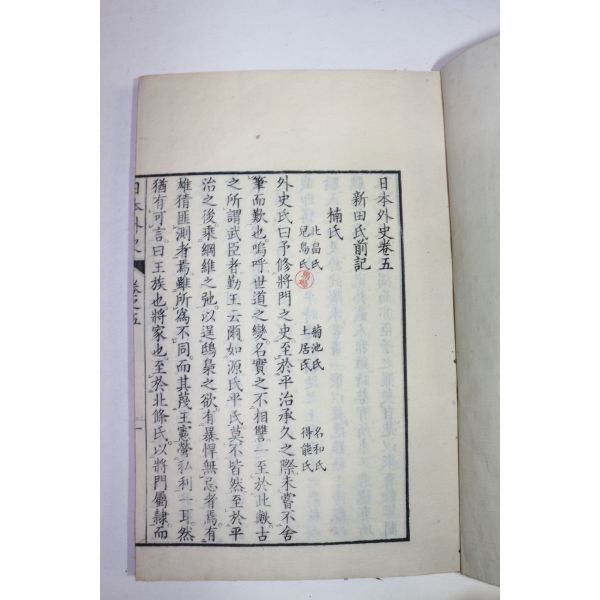 日本外史卷五
新田氏前記
楠氏
北畠氏 菊池氏 名和氏
兒島氏 土居氏 得能氏
外史氏曰予修將門之史至於平治承久之際未嘗不舍
筆而歎也嗚呼世道之變名實之不相讐一至於此歟古
之所謂武臣者勤王云爾如源氏平氏莫不皆然至於平
治之後乘綱維之弛以逞鴟梟之欲有暴悍無忌者焉有
雄猜匪測者焉雖所爲不同而其蔑王憲營私利一耳然
猶有可言曰王族也將家也至於北條氏以將門屬隷而
日本外史 卷之五